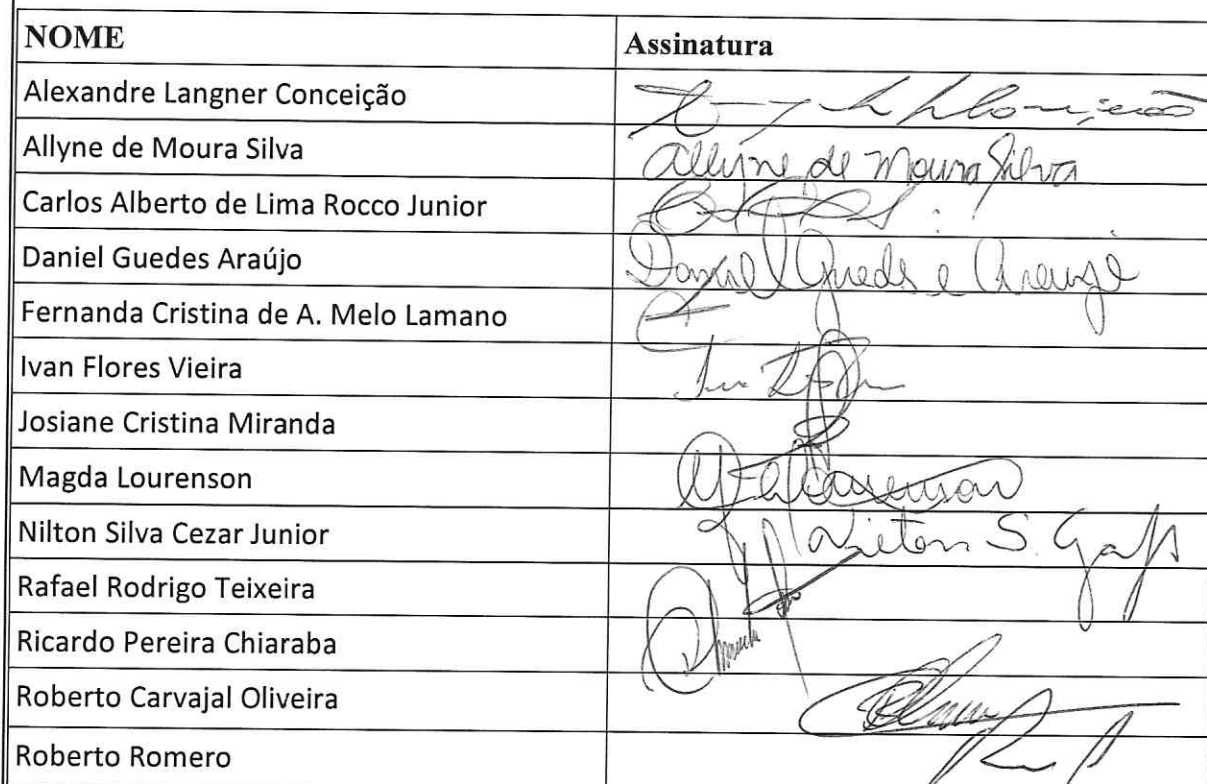 NOME Assinatura
Alexandre Langner Conceição
Allyne de Moura Silva Allyne de Moura Silva
Carlos Alberto de Lima Rocco Junior
Daniel Guedes Araújo Daniel Guedes e Araujo
Fernanda Cristina de A. Melo Lamano
Ivan Flores Vieira
Josiane Cristina Miranda
Magda Lourenson
Nilton Silva Cezar Junior Nilton S.
Rafael Rodrigo Teixeira
Ricardo Pereira Chiaraba
Roberto Carvajal Oliveira
Roberto Romero